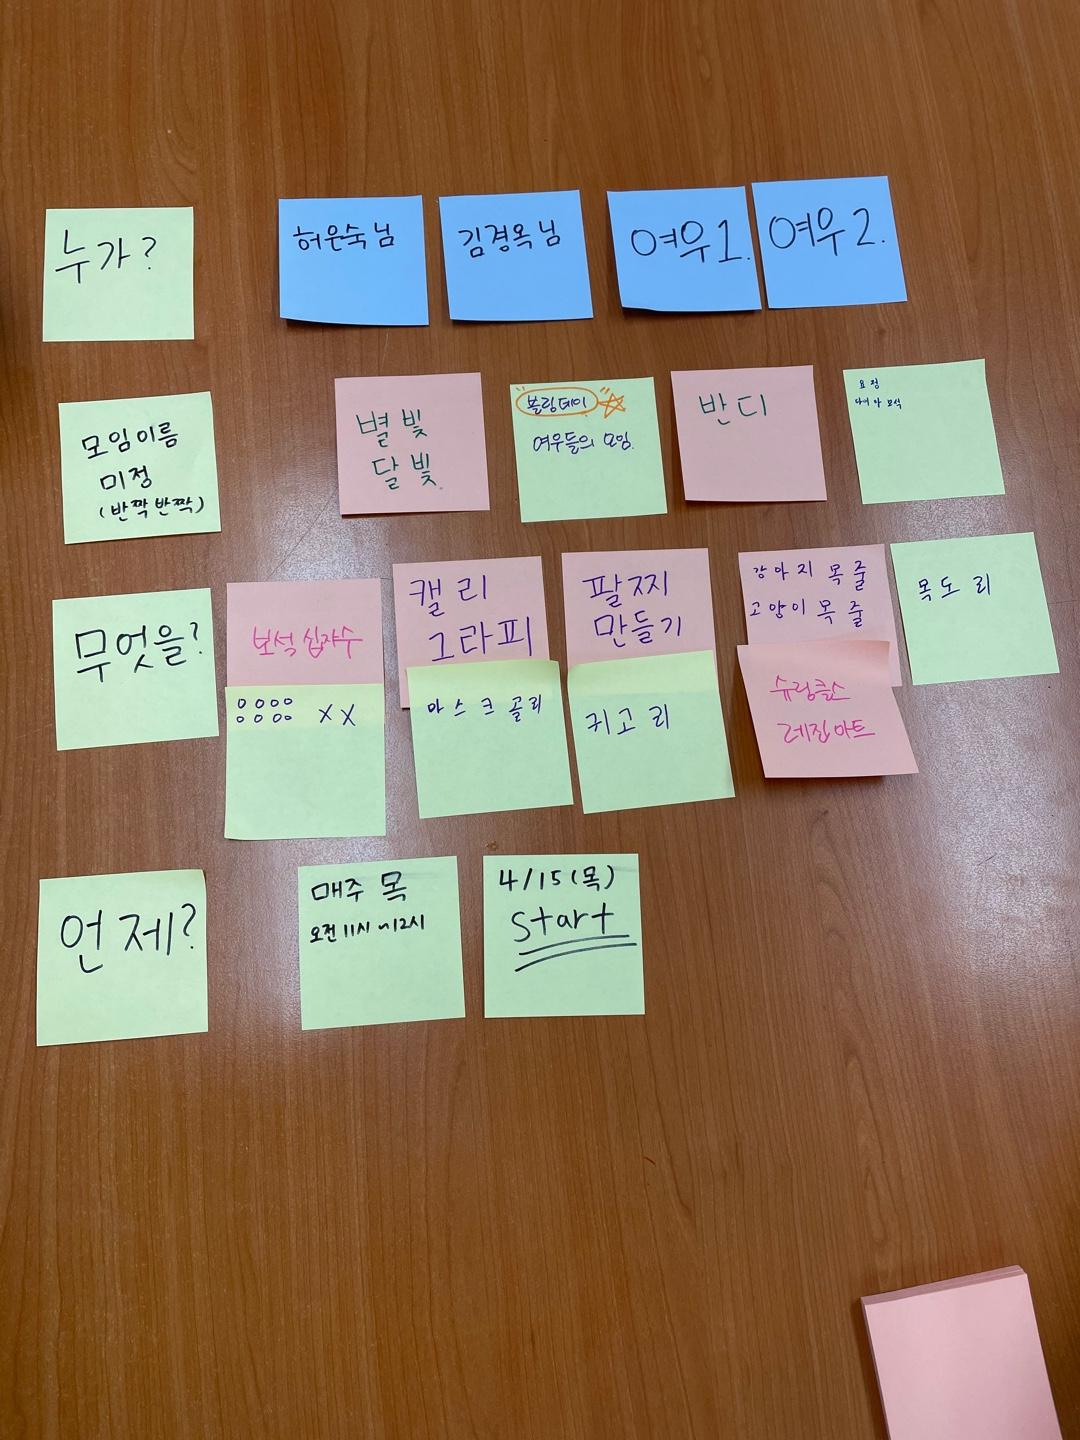 누가?
허은숙님
김경옥님
여우1.
여우2.
모임이름
미정
(반짝반짝)
별빛
달빛.
볼링데이
여우들의 모임.
반디
요정
다이아 보석
무엇을?
보석 십자수
oooo
oooo xx
캘리
그라피
마스크 골리
팔찌
만들기
귀고리
강아지 목줄
고양이 목줄
슈링클스
레진아트
목도리
언제?
매주 목
오전 11시~12시
4/15(목)
Start